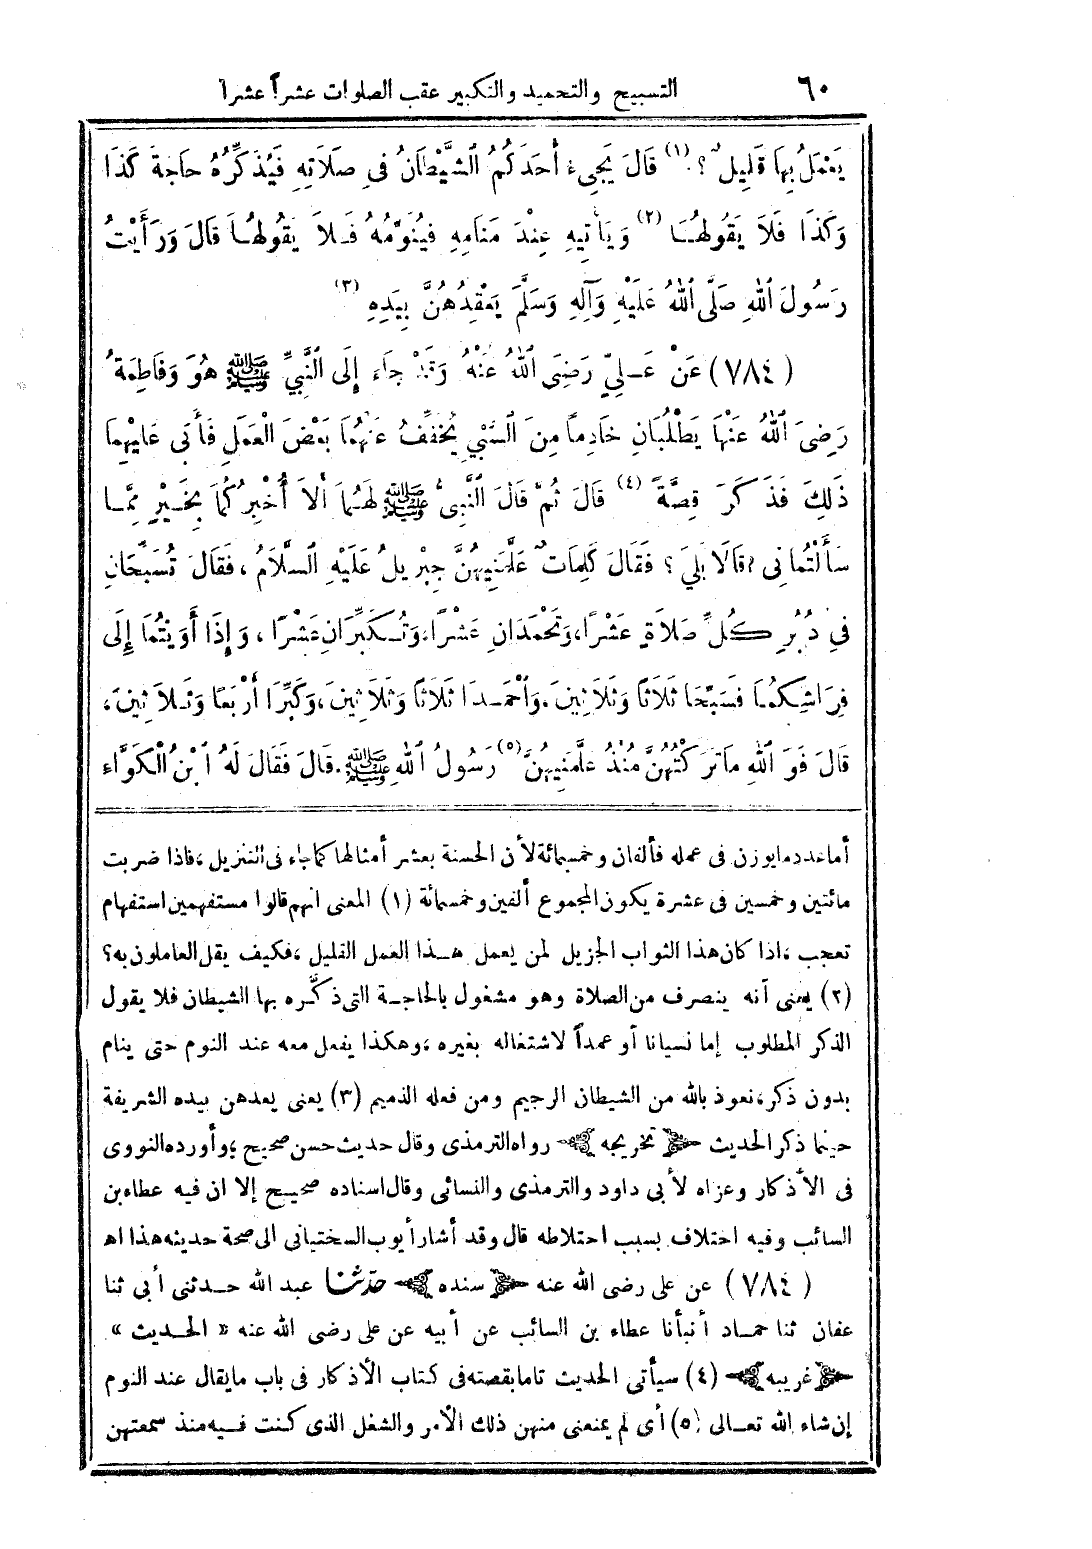 ٦٠ التسبيح والتحميد والتكبير عقب الصلوات عشراً عشرا
يَعْمَلُ بِهَا قَلِيلٌ ؟ (١) قَالَ يَجِيءُ أَحَدَكُمُ الشَّيْطَانُ فِي صَلَاتِهِ فَيُذَكِّرُهُ حَاجَةَ كَذَا
وَكَذَا فَلَا يَقُولُهَا (٢) وَيَأْتِيهِ عِنْدَ مَنَامِهِ فَيُنَوِّمُهُ فَلَا يَقُولُهَا قَالَ وَرَأَيْتُ
رَسُولَ اللهِ صَلَّى اللهُ عَلَيْهِ وَآلِهِ وَسَلَّمَ يَعْقِدُهُنَّ بِيَدِهِ (٣)
(٧٨٤) عَنْ عَلِيٍّ رَضِيَ اللهُ عَنْهُ وَقَدْ جَاءَ إِلَى النَّبِيِّ ﷺ هُوَ وَفَاطِمَةُ
رَضِيَ اللهُ عَنْهَا يَطْلُبَانِ خَادِمًا مِنَ السَّبْيِ يُخَفِّفُ عَنْهُمَا بَعْضَ الْعَمَلِ فَأَبَى عَلَيْهِمَا
ذَلِكَ فَذَكَرَ قِصَّةً (٤) قَالَ ثُمَّ قَالَ النَّبِيُّ ﷺ لَهُمَا أَلَا أُخْبِرُكُمَا بِخَيْرٍ مِمَّا
سَأَلْتُمَانِي ؟ قَالَا بَلَى ؟ فَقَالَ كَلِمَاتٌ عَلَّمَنِيهِنَّ جِبْرِيلُ عَلَيْهِ السَّلَامُ ، فَقَالَ تُسَبِّحَانِ
فِي دُبُرِ كُلِّ صَلَاةٍ عَشْرًا ، وَتَحْمَدَانِ عَشْرًا ، وَتُكَبِّرَانِ عَشْرًا ، وَإِذَا أَوَيْتُمَا إِلَى
فِرَاشِكُمَا فَسَبِّحَا ثَلَاثًا وَثَلَاثِينَ . وَاحْمَدَا ثَلَاثًا وَثَلَاثِينَ ، وَكَبِّرَا أَرْبَعًا وَثَلَاثِينَ ،
قَالَ فَوَ اللهِ مَا تَرَكْتُهُنَّ مُنْذُ عَلَّمَنِيهِنَّ (٥) رَسُولُ اللهِ ﷺ . قَالَ فَقَالَ لَهُ ابْنُ الْكَوَّاءِ
أما عدد ما يوزن فى عمله فألفان وخمسمائة لأن الحسنة بعشر أمثالها كما جاء فى التنزيل ، فاذا ضربت
مائتين وخمسين فى عشرة يكون المجموع ألفين وخمسمائة (١) المعنى انهم قالوا مستفهمين استفهام
تعجب ، اذا كان هذا الثواب الجزيل لمن يعمل هذا العمل القليل ، فكيف يقل العاملون به ؟
(٢) يعنى أنه ينصرف من الصلاة وهو مشغول بالحاجة التى ذكَّره بها الشيطان فلا يقول
الذكر المطلوب إما نسيانا أو عمداً لاشتغاله بغيره ، وهكذا يفعل معه عند النوم حتى ينام
بدون ذكر ، نعوذ بالله من الشيطان الرجيم ومن فعله الذميم (٣) يعنى يعدهن بيده الشريفة
حينما ذكر الحديث ﴿ تخريجه ﴾ رواه الترمذى وقال حديث حسن صحيح ؛ وأورده النووى
فى الأذكار وعزاه لأبى داود والترمذى والنسائى وقال اسناده صحيح إلا ان فيه عطاء بن
السائب وفيه اختلاف بسبب احتلاطه قال وقد أشار أيوب السختيانى الى صحة حديثه هذا اهـ
(٧٨٤) عن على رضى الله عنه ﴿ سنده ﴾ حدّثنا عبد الله حدثنى أبى ثنا
عفان ثنا حماد أنبأنا عطاء بن السائب عن أبيه عن على رضى الله عنه « الحديث »
﴿ غريبه ﴾ (٤) سيأتى الحديث تاما بقصته فى كتاب الأذكار فى باب ما يقال عند النوم
إن شاء الله تعالى (٥) أى لم يمنعنى منهن ذلك الأمر والشغل الذى كنت فيه منذ سمعتهن